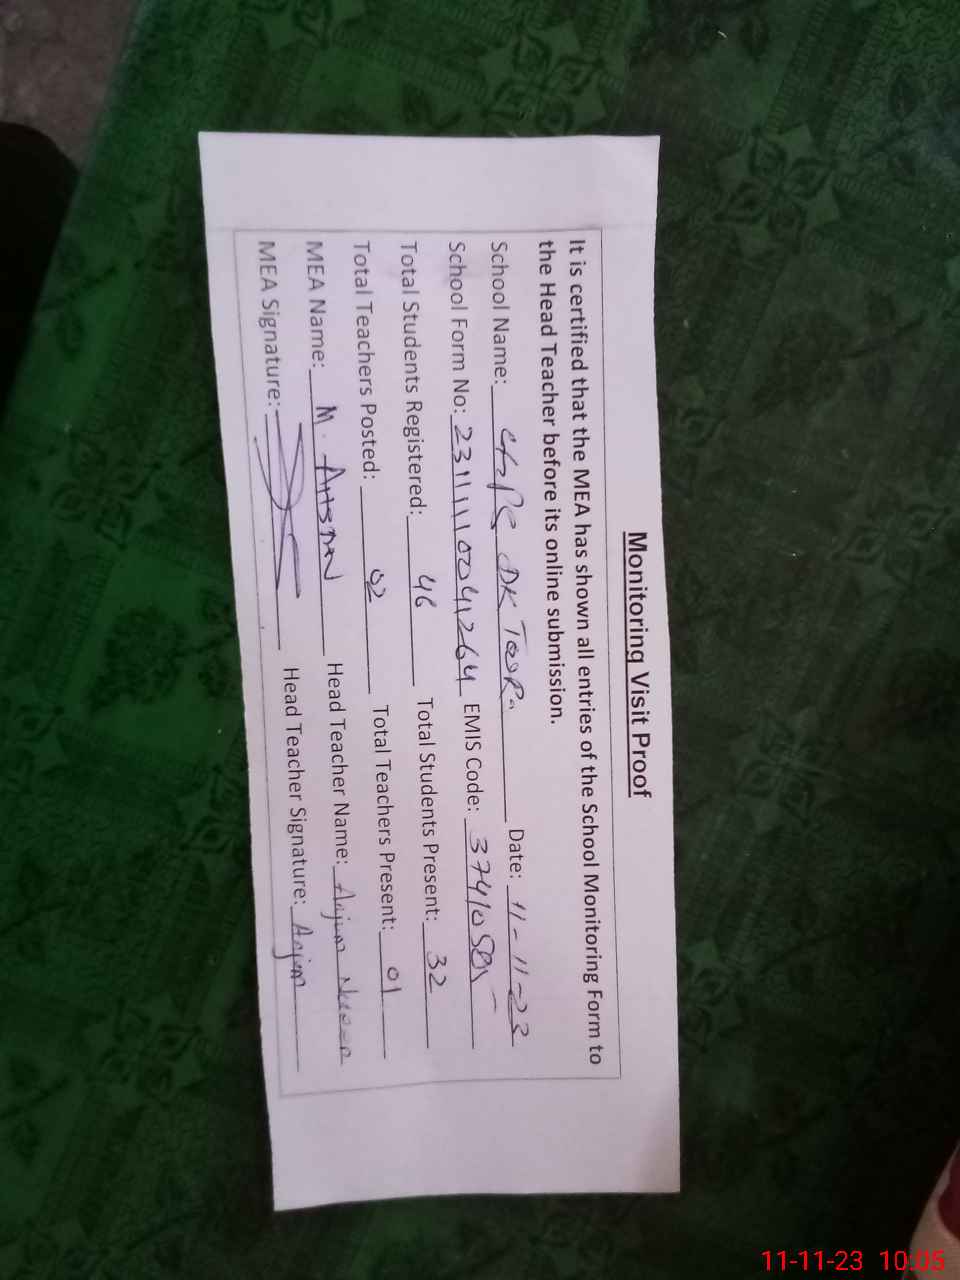 Monitoring Visit Proof
It is certified that the MEA has shown all entries of the School Monitoring Form to
the Head Teacher before its online submission.
School Name: DK Date: 11-11-23
School Form No: EMIS Code:
Total Students Registered: 46 Total Students Present: 32
Total Teachers Posted: 02 Total Teachers Present: 01
MEA Name: M. Head Teacher Name: Anjum
MEA Signature: Head Teacher Signature: Anjum
11-11-23 10:05